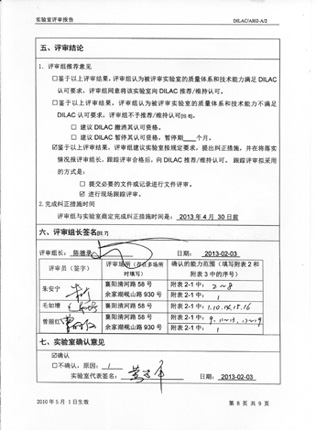 实验室评审报告 DILAC/AI02-A/2
五、评审结论
1. 评审组推荐意见
□鉴于以上评审结果，评审组认为被评审实验室的质量体系和技术能力满足 DILAC
认可要求，评审组同意将该实验室向 DILAC 推荐/维持认可。
□鉴于以上评审结果，评审组认为被评审实验室的质量体系和技术能力不满足
DILAC 认可要求，评审组不予推荐/维持认可
□ 建议 DILAC 撤消其认可资格。
□ 建议 DILAC 暂停其认可资格，暂停期 个月。
☑鉴于以上评审结果，评审组建议实验室按规定要求，提出纠正措施，并在将落实
情况报评审组长、跟踪评审合格后，向 DILAC 推荐/维持认可。跟踪评审拟采用
的方式是：
□ 提交必要的文件或记录进行文件评审。
☑ 进行现场跟踪评审。
2. 完成纠正措施时间
评审组与实验室商定完成纠正措施时间是：2013 年 4 月 30 日前
六、评审组长签名
评审组长：陈德录 日期：2013-02-03
评审员（签字） 评审场所（存在多场所时填写） 确认的能力范围（填写附表 2 和附表 3 中的序号）
朱安宁 襄阳清河路 58 号 附表 2-1 中：2~8
余家湖岘山路 930 号 附表 2-1 中：1
毛如增 襄阳清河路 58 号 附表 2-1 中：
余家湖岘山路 930 号 附表 2-1 中：
曾丽红 襄阳清河路 58 号 附表 2-1 中：
余家湖岘山路 930 号 附表 2-1 中：1
七、实验室确认意见
☑确认
□不确认，原因：
实验室代表签名： 日期：2013-02-03
2010 年 5 月 1 日生效 第 8 页 共 9 页